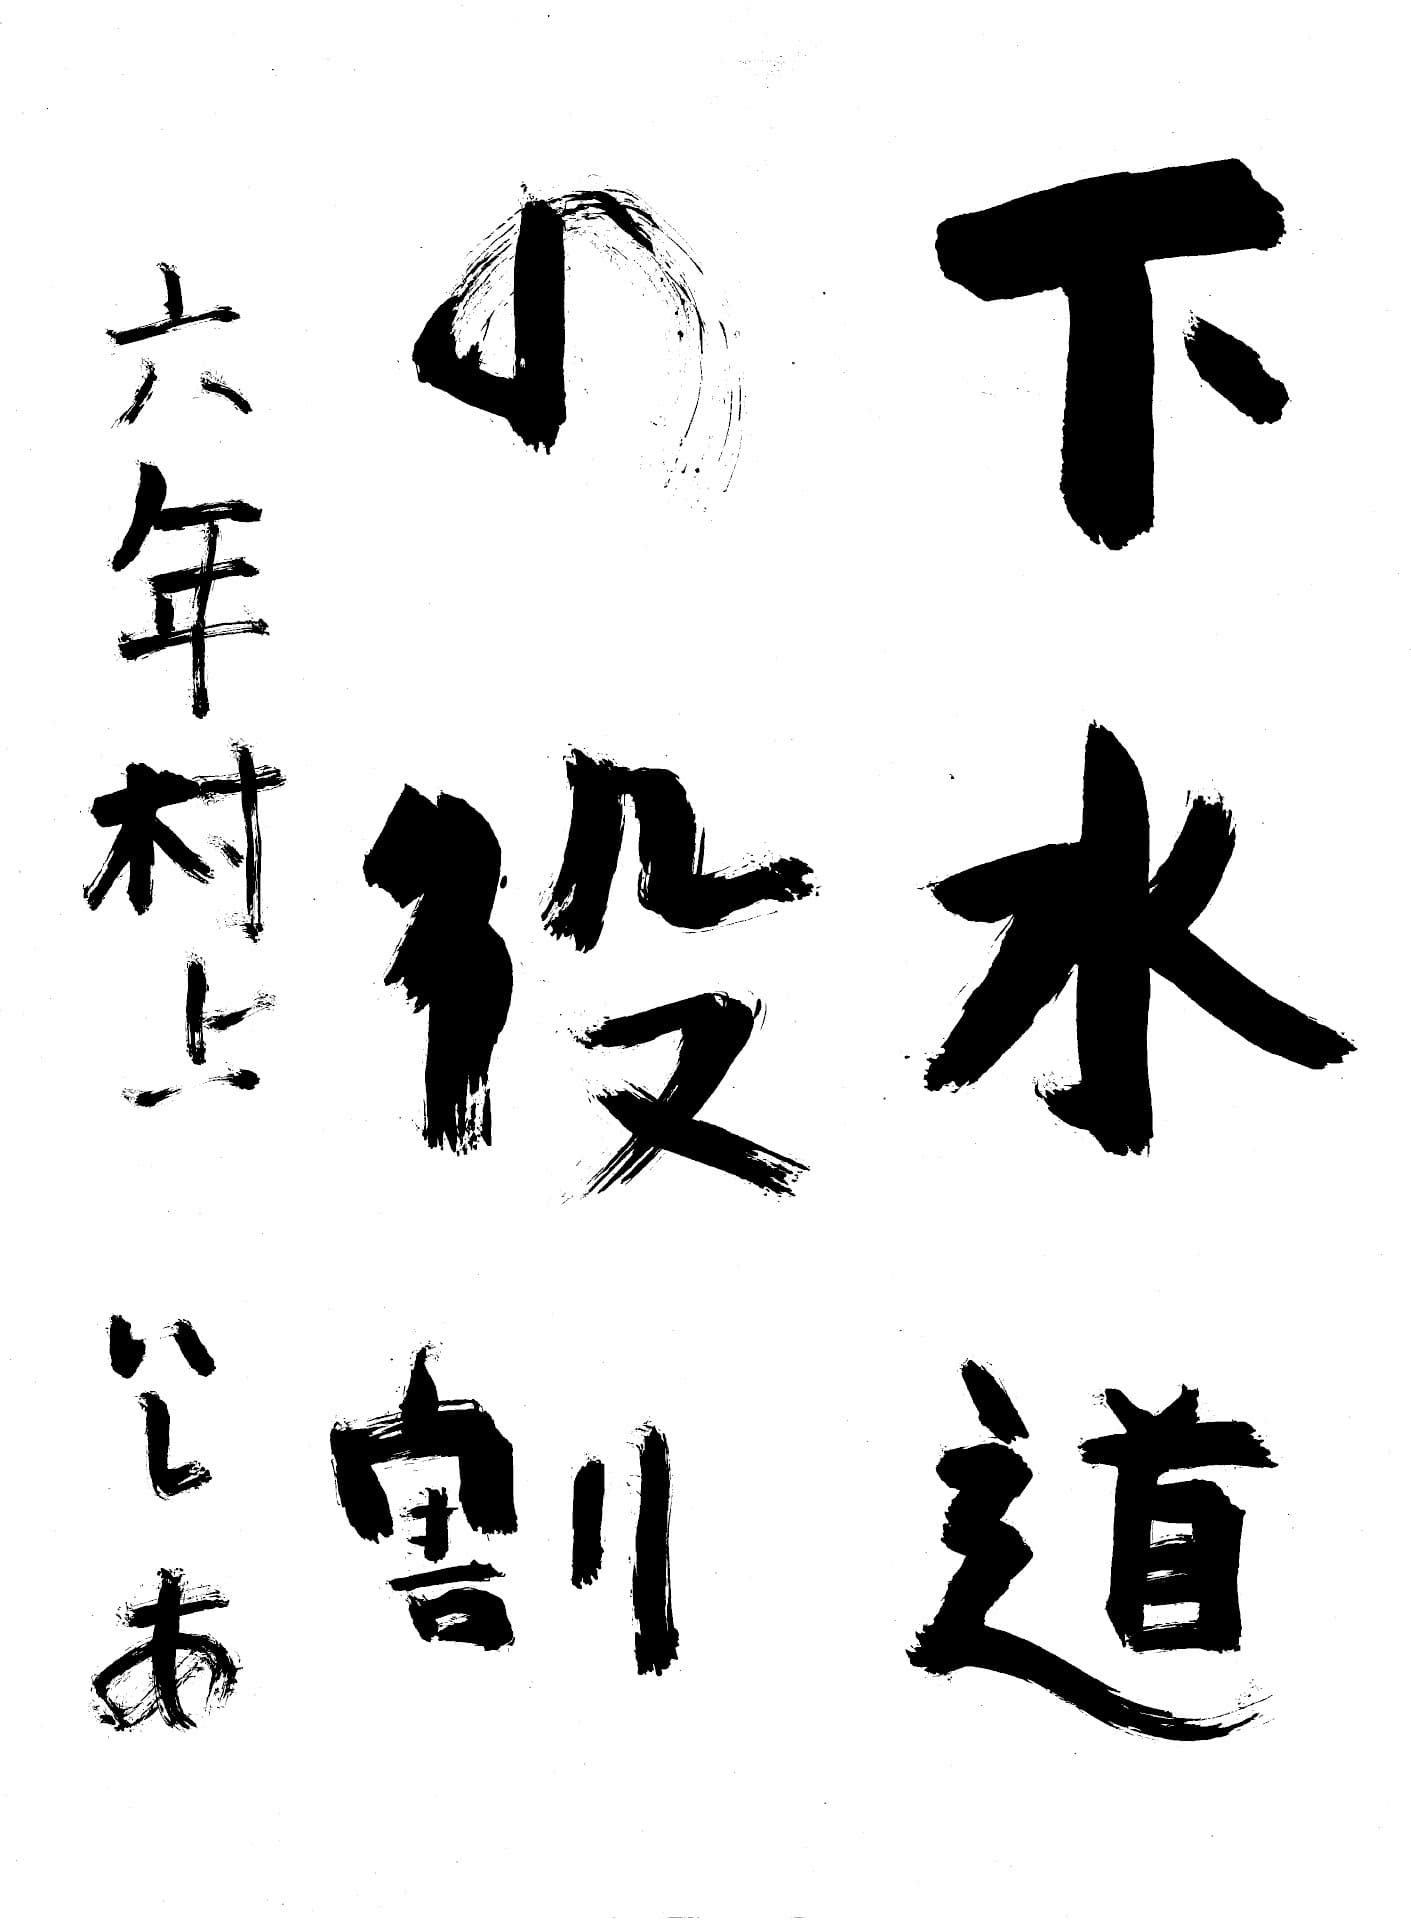 下水道
の役割
六年村上いしあ